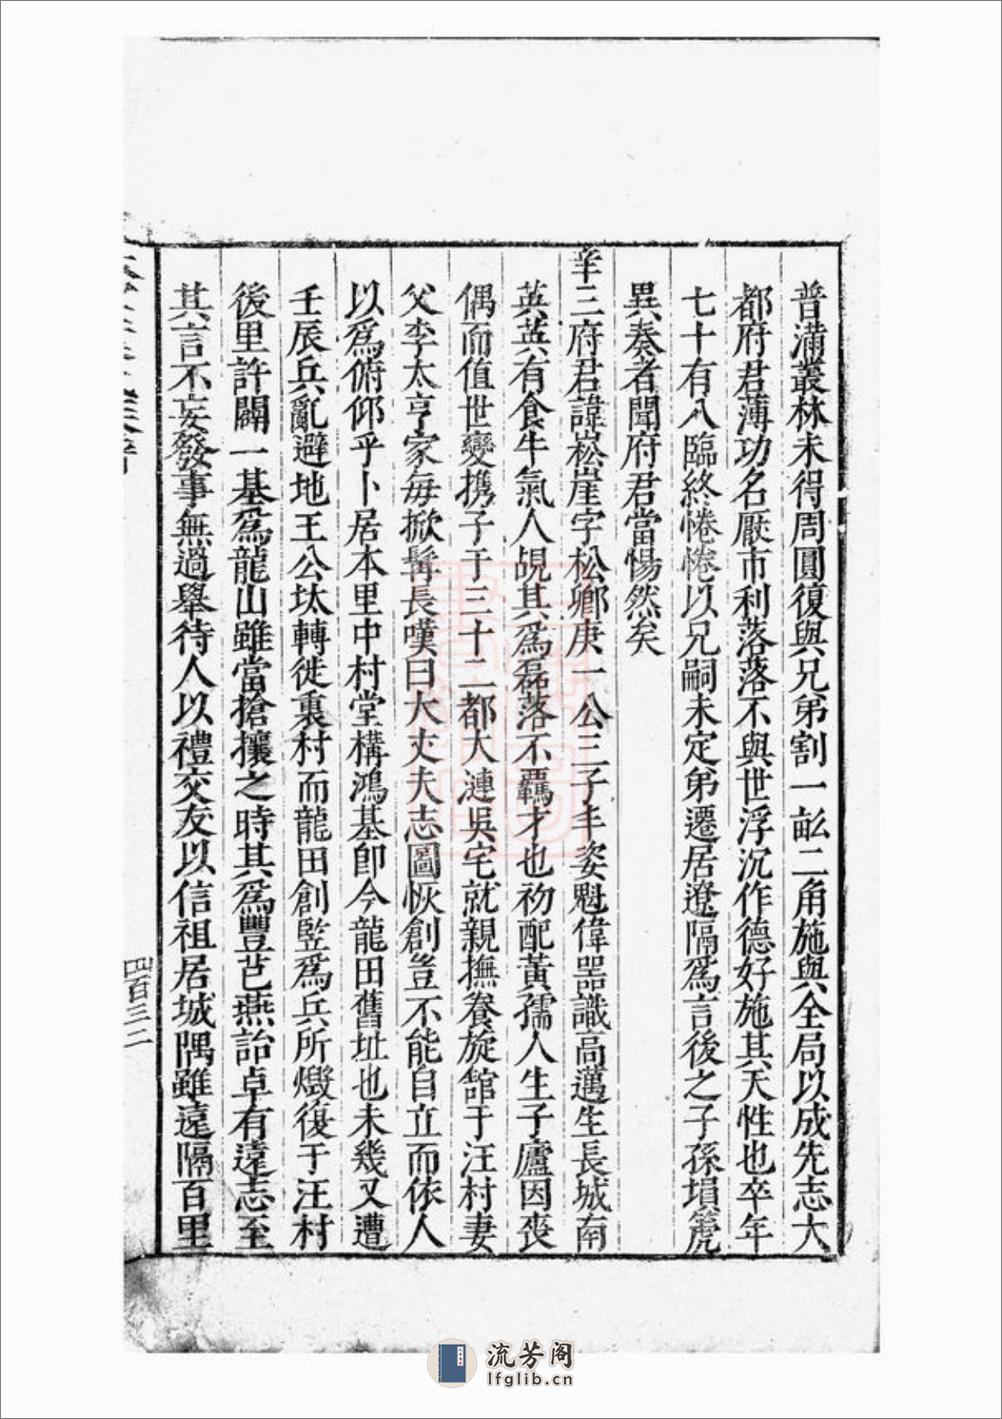 普滿叢林未得周圓復與兄弟割一畝二角施與全局以成先志大
都府君薄功名厭市利落落不與世浮沉作德好施其天性也卒年
七十有八臨終惓惓以兄嗣未定弟遷居遼隔爲言後之子孫塤箎
異奏者聞府君當惕然矣
辛三府君諱崧崖字松卿庚一公三子丰姿魁偉噐識高邁生長城南
英英有食牛氣人覘其爲磊落不羈才也初配黃孺人生子廬因喪
偶而值世變携子于三十二都大漣吳宅就親撫養旋館于汪村妻
父李太亨家每掀髯長嘆曰大丈夫志圖恢創豈不能自立而依人
以爲俯仰乎卜居本里中村堂構鴻基卽今龍田舊址也未幾又遭
壬辰兵亂避地王公圤轉徙裏村而龍田創竪爲兵所燬復于汪村
後里許闢一基爲龍山雖當搶攘之時其爲豐芑燕詒卓有遠志至
其言不妄發事無過舉待人以禮交友以信祖居城隅雖遠隔百里
四百三二
流芳阁
lfglib.cn